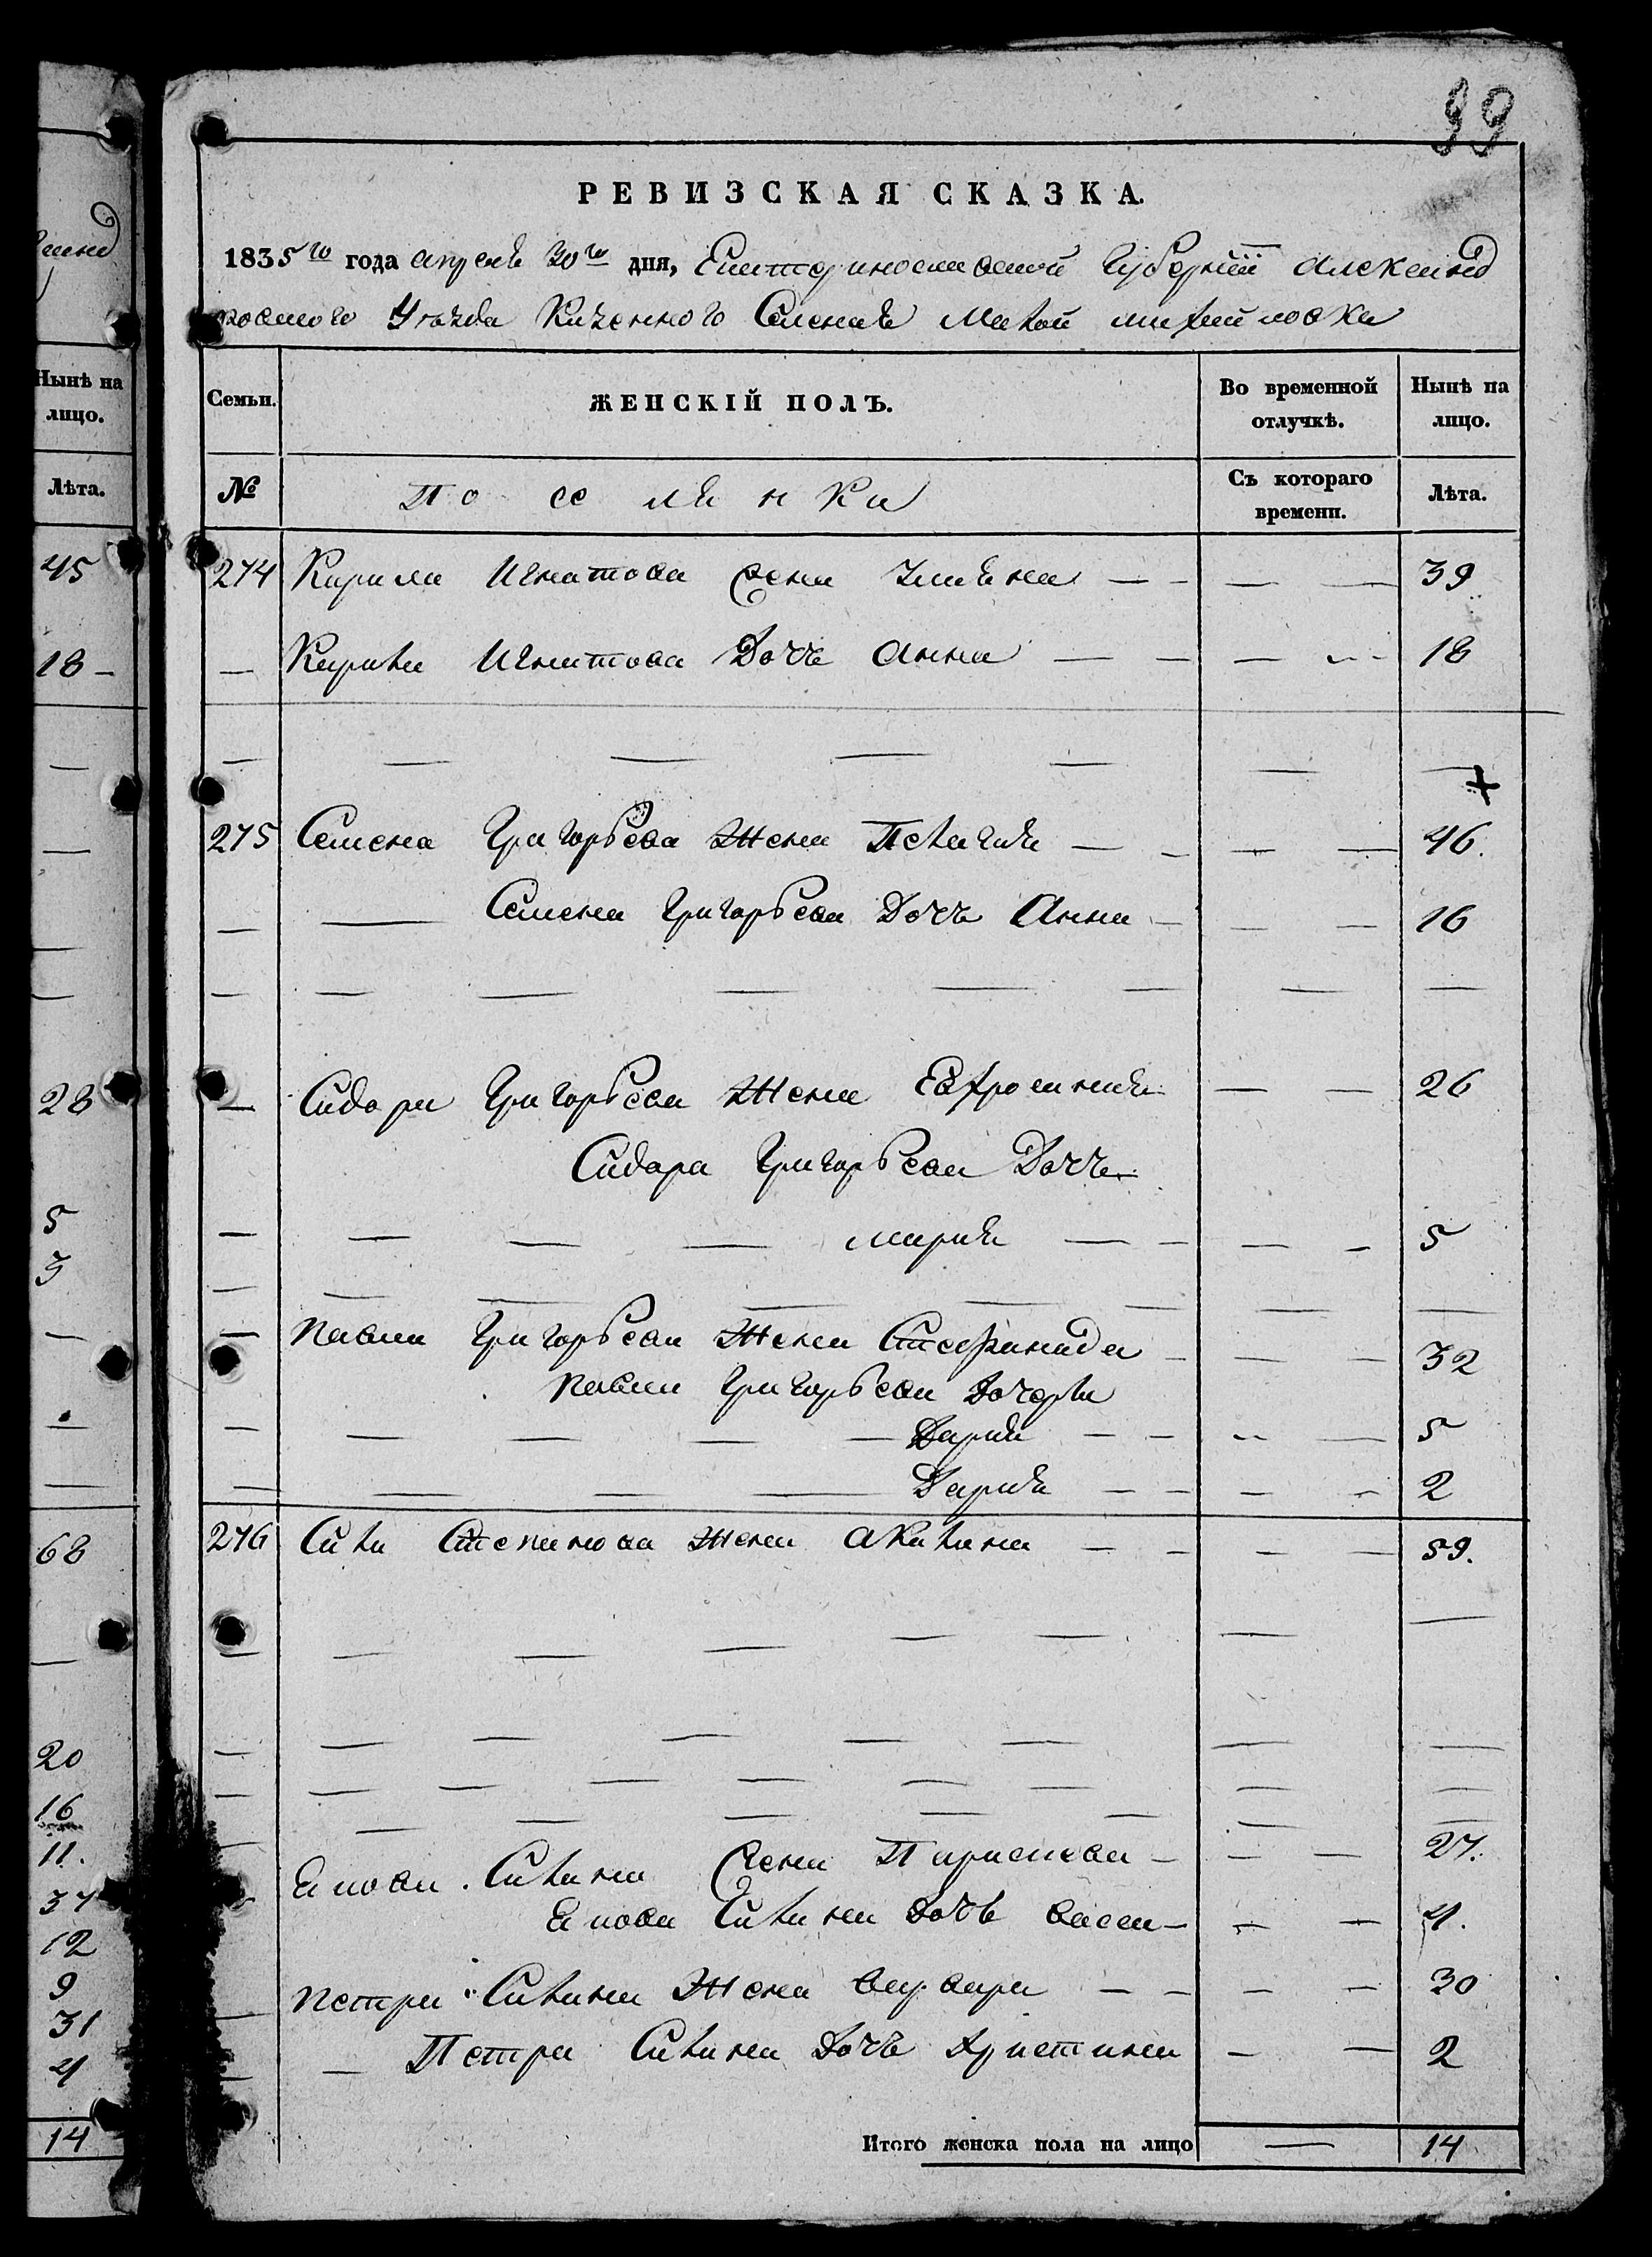 99
РЕВИЗСКАЯ СКАЗКА.
1835го года апреля 20го дня, Екатеринославской Губернїи Александ
ровского Уѣзда Казенного Селения Малой михайловки
Семьи.
ЖЕНСКІЙ ПОЛЪ.
Во временной отлучкѣ.
Нынѣ на лицо.
№
Поселянки
Съ котораго времени.
Лѣта.
274 Кирила Игнатова жена 39
— Кирила Игнатова Дочь Анна — — — — 18
— — — — — — —
275 Семена Григорьева Жена Пелагия — — — — 46.
— — Семена Григорьева Дочь Анна — — — 16
— — — — — — — —
— Сидора Григорьева Жена Евфросиния — — 26
Сидора Григорьева Дочь
— — — — мария — — — — 5
— — — — — — — —
— Павла Григорьева Жена Стефанида — — — 32
Павла Григорьева Дочери
— — — — — Дария — — — — 5
— — — — Дария — — — — 2
276 Силы Степанова Жена Акилина — — — — 59.
Якова Силина жена Параскева — — — 27.
Якова Силина дочь Васса — — — 4.
— Петра Силина Жена Варвара — — — — 30
— — Петра Силина дочь Христина — — 2
Итого женска пола на лицо — 14
аленд
Нынѣ на
лицо.
Лѣта.
45
18 —
—
—
—
—
28
5
3
—
—
—
68
—
20
16
11.
37
12
9
31
4
14